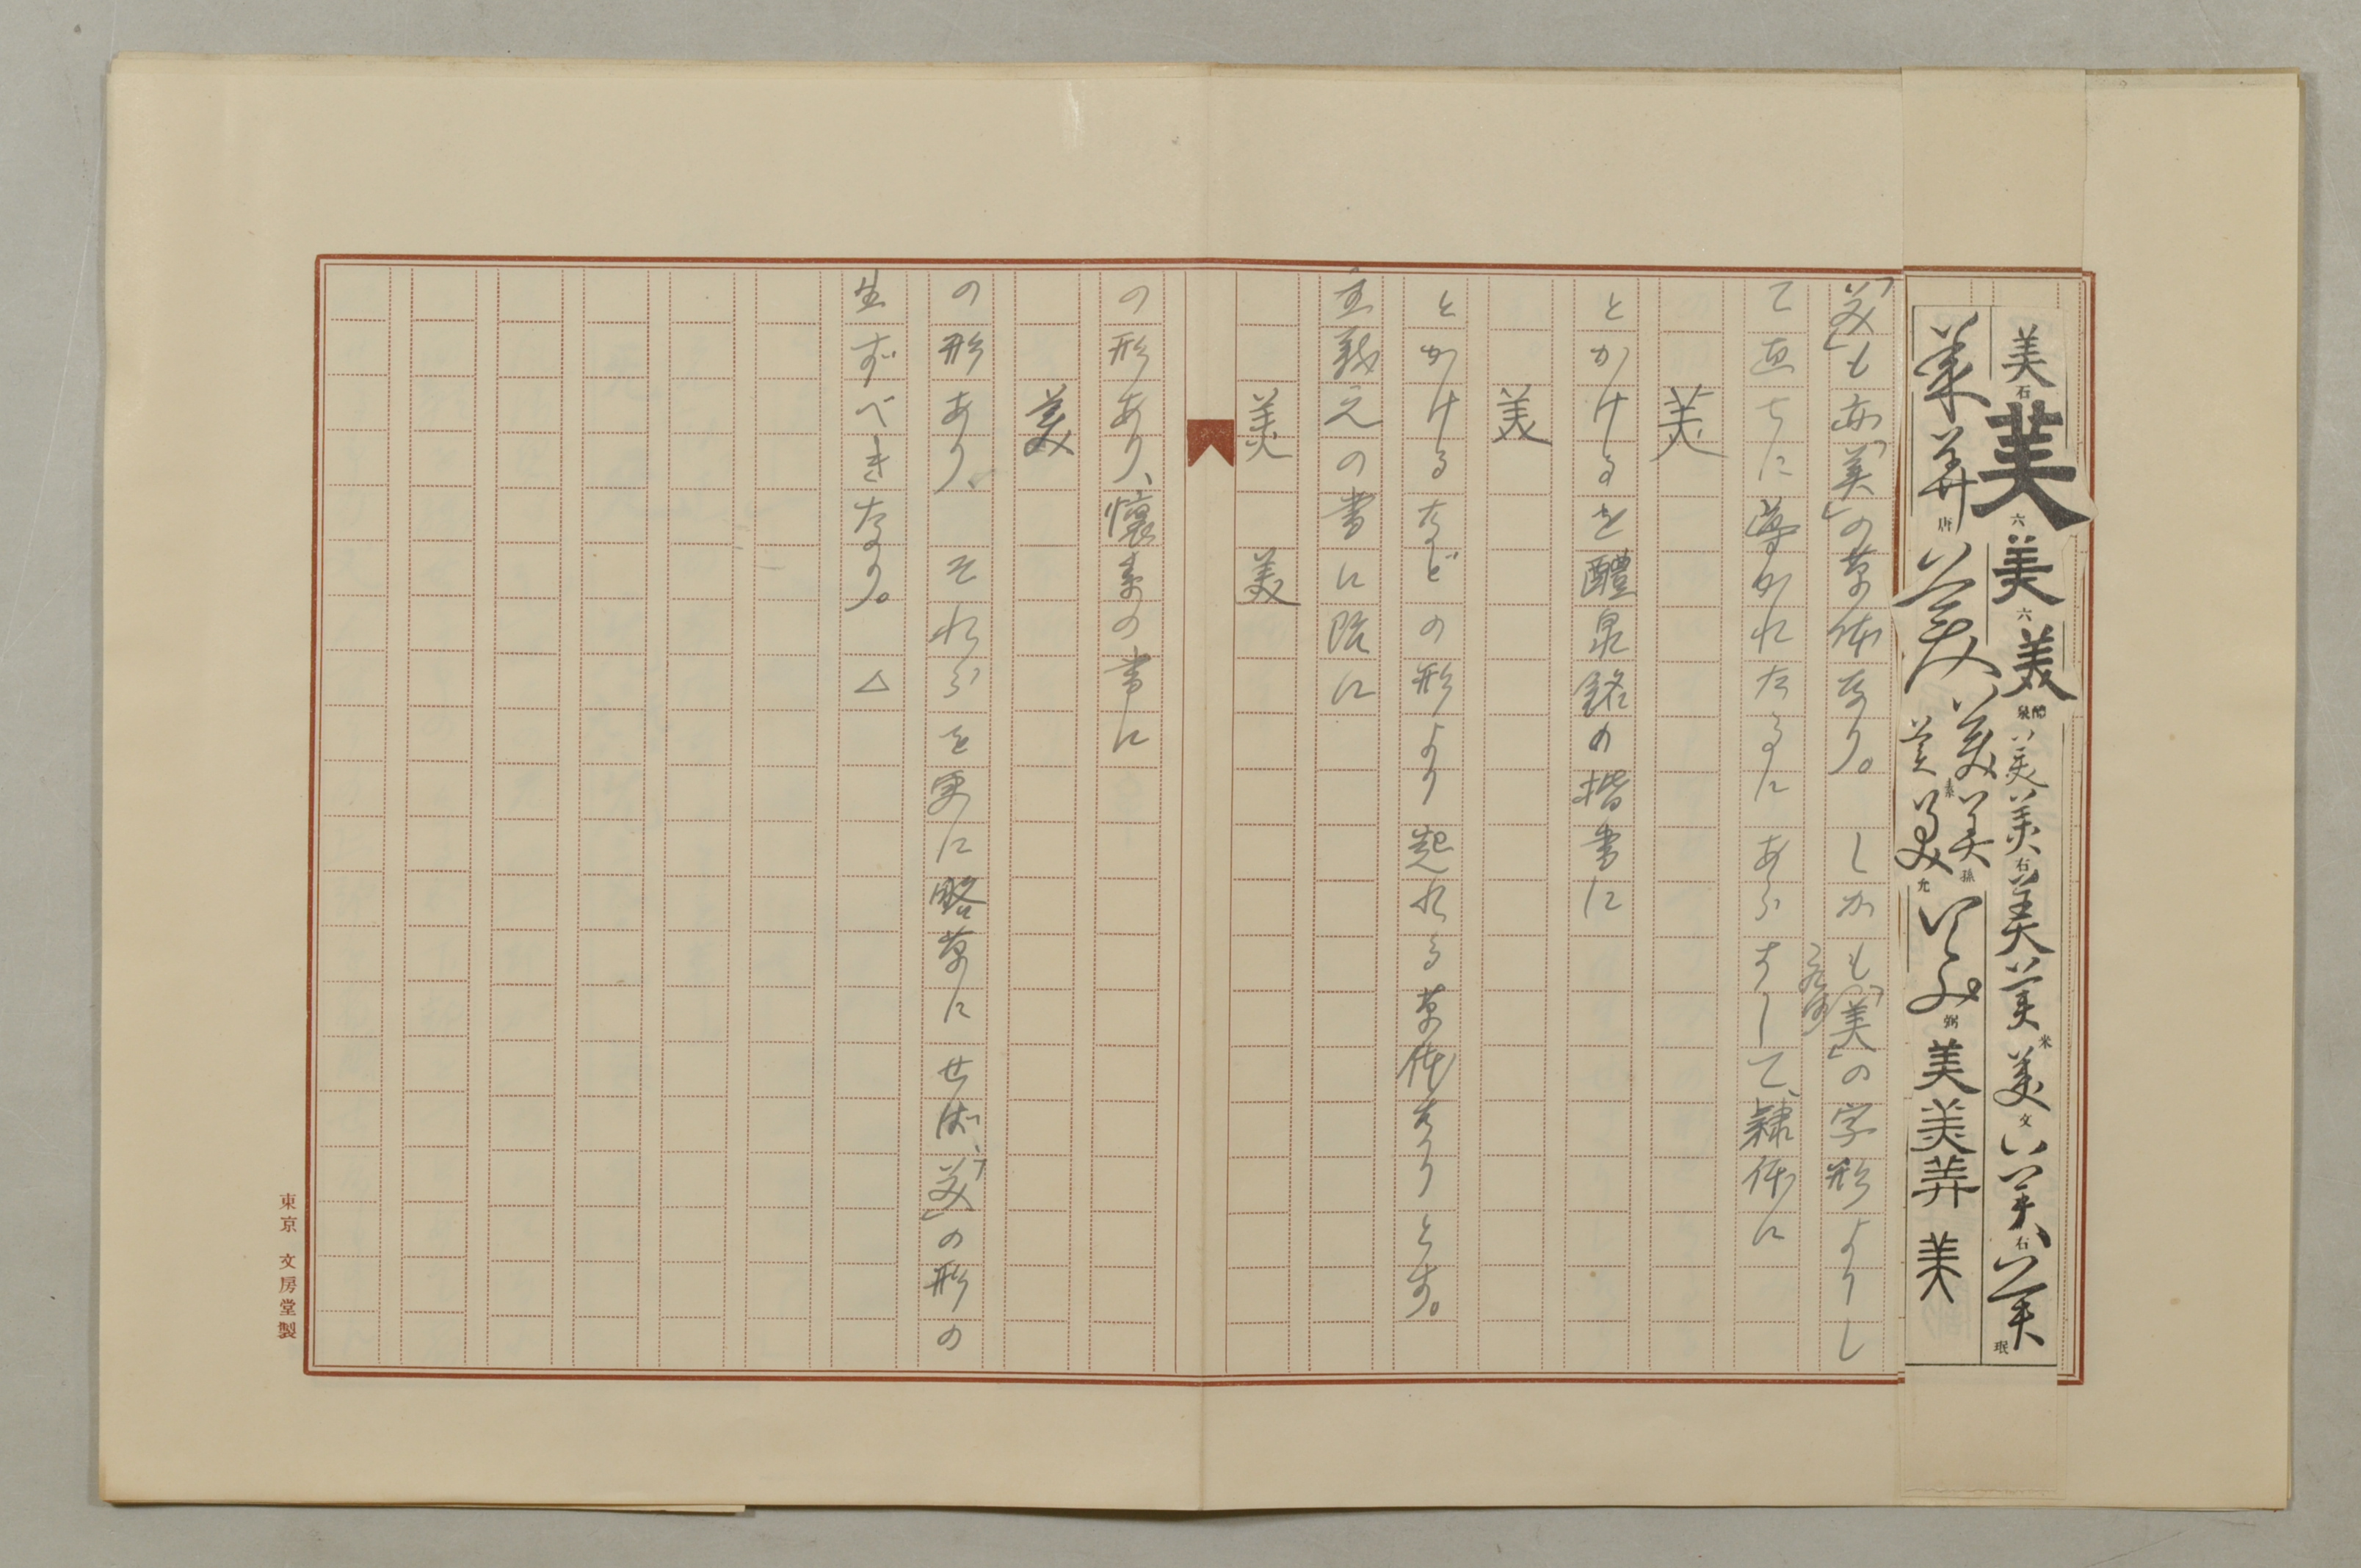 美 石 美 六 美 六 美 醴泉 美 美 石 美 美 米 美 文 美 石 美 珉
美 美 唐 美 美 素 美 美 孫 美 允 美 弼 美 美 美 美
「美」も亦「美」の草体なり。 しかも「美」の字形よりし
て直ちに導かれたるにあらずして、隷体に
美
とかけるを醴泉銘の楷書に
美
とかけるなどの形より起れる草体なりとす。
王羲之の書に既に
美 美
の形あり、懐素の書に
美
の形あり、 それらを更に略草にせば、「美」の形の
生ずべきなり。 △
東京 文房堂製